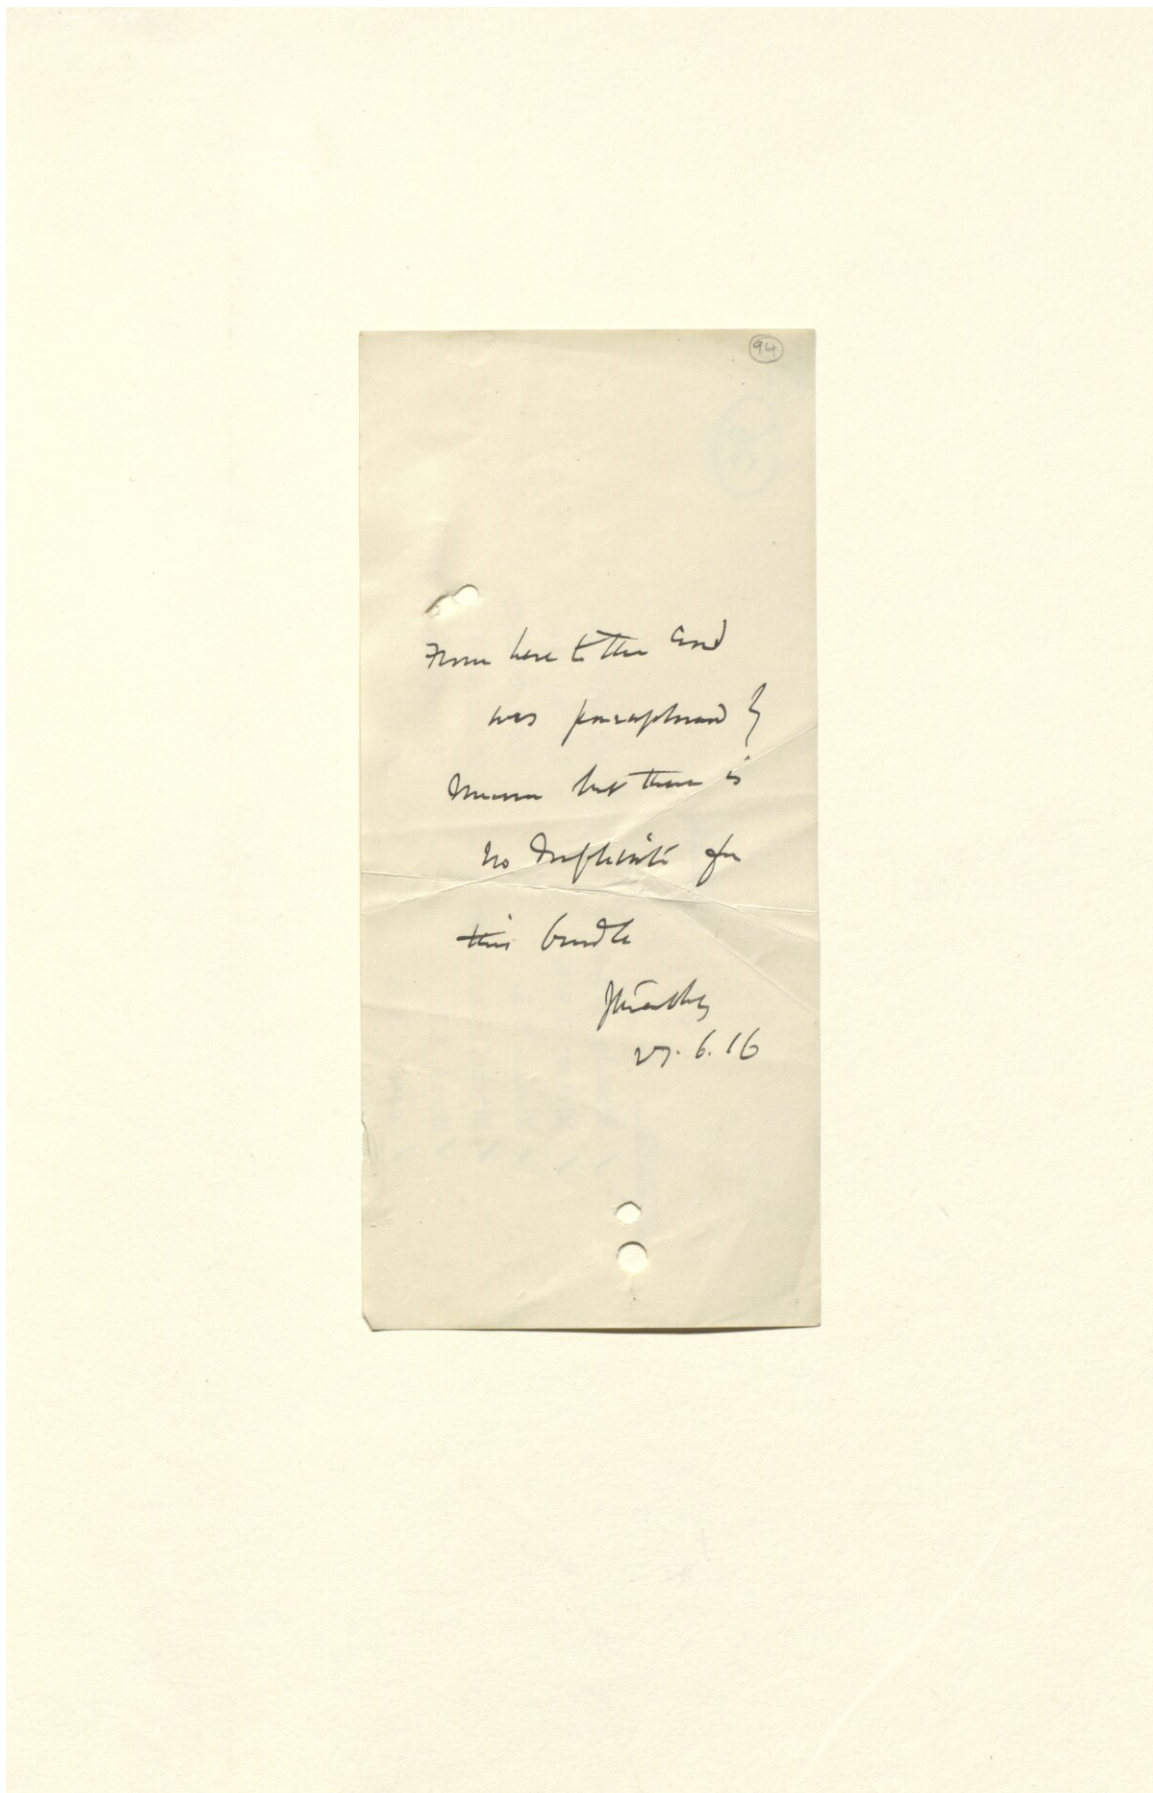 94
From here to the end
was paraphrased by
but there is
no duplicate for
this bundle
27.6.16